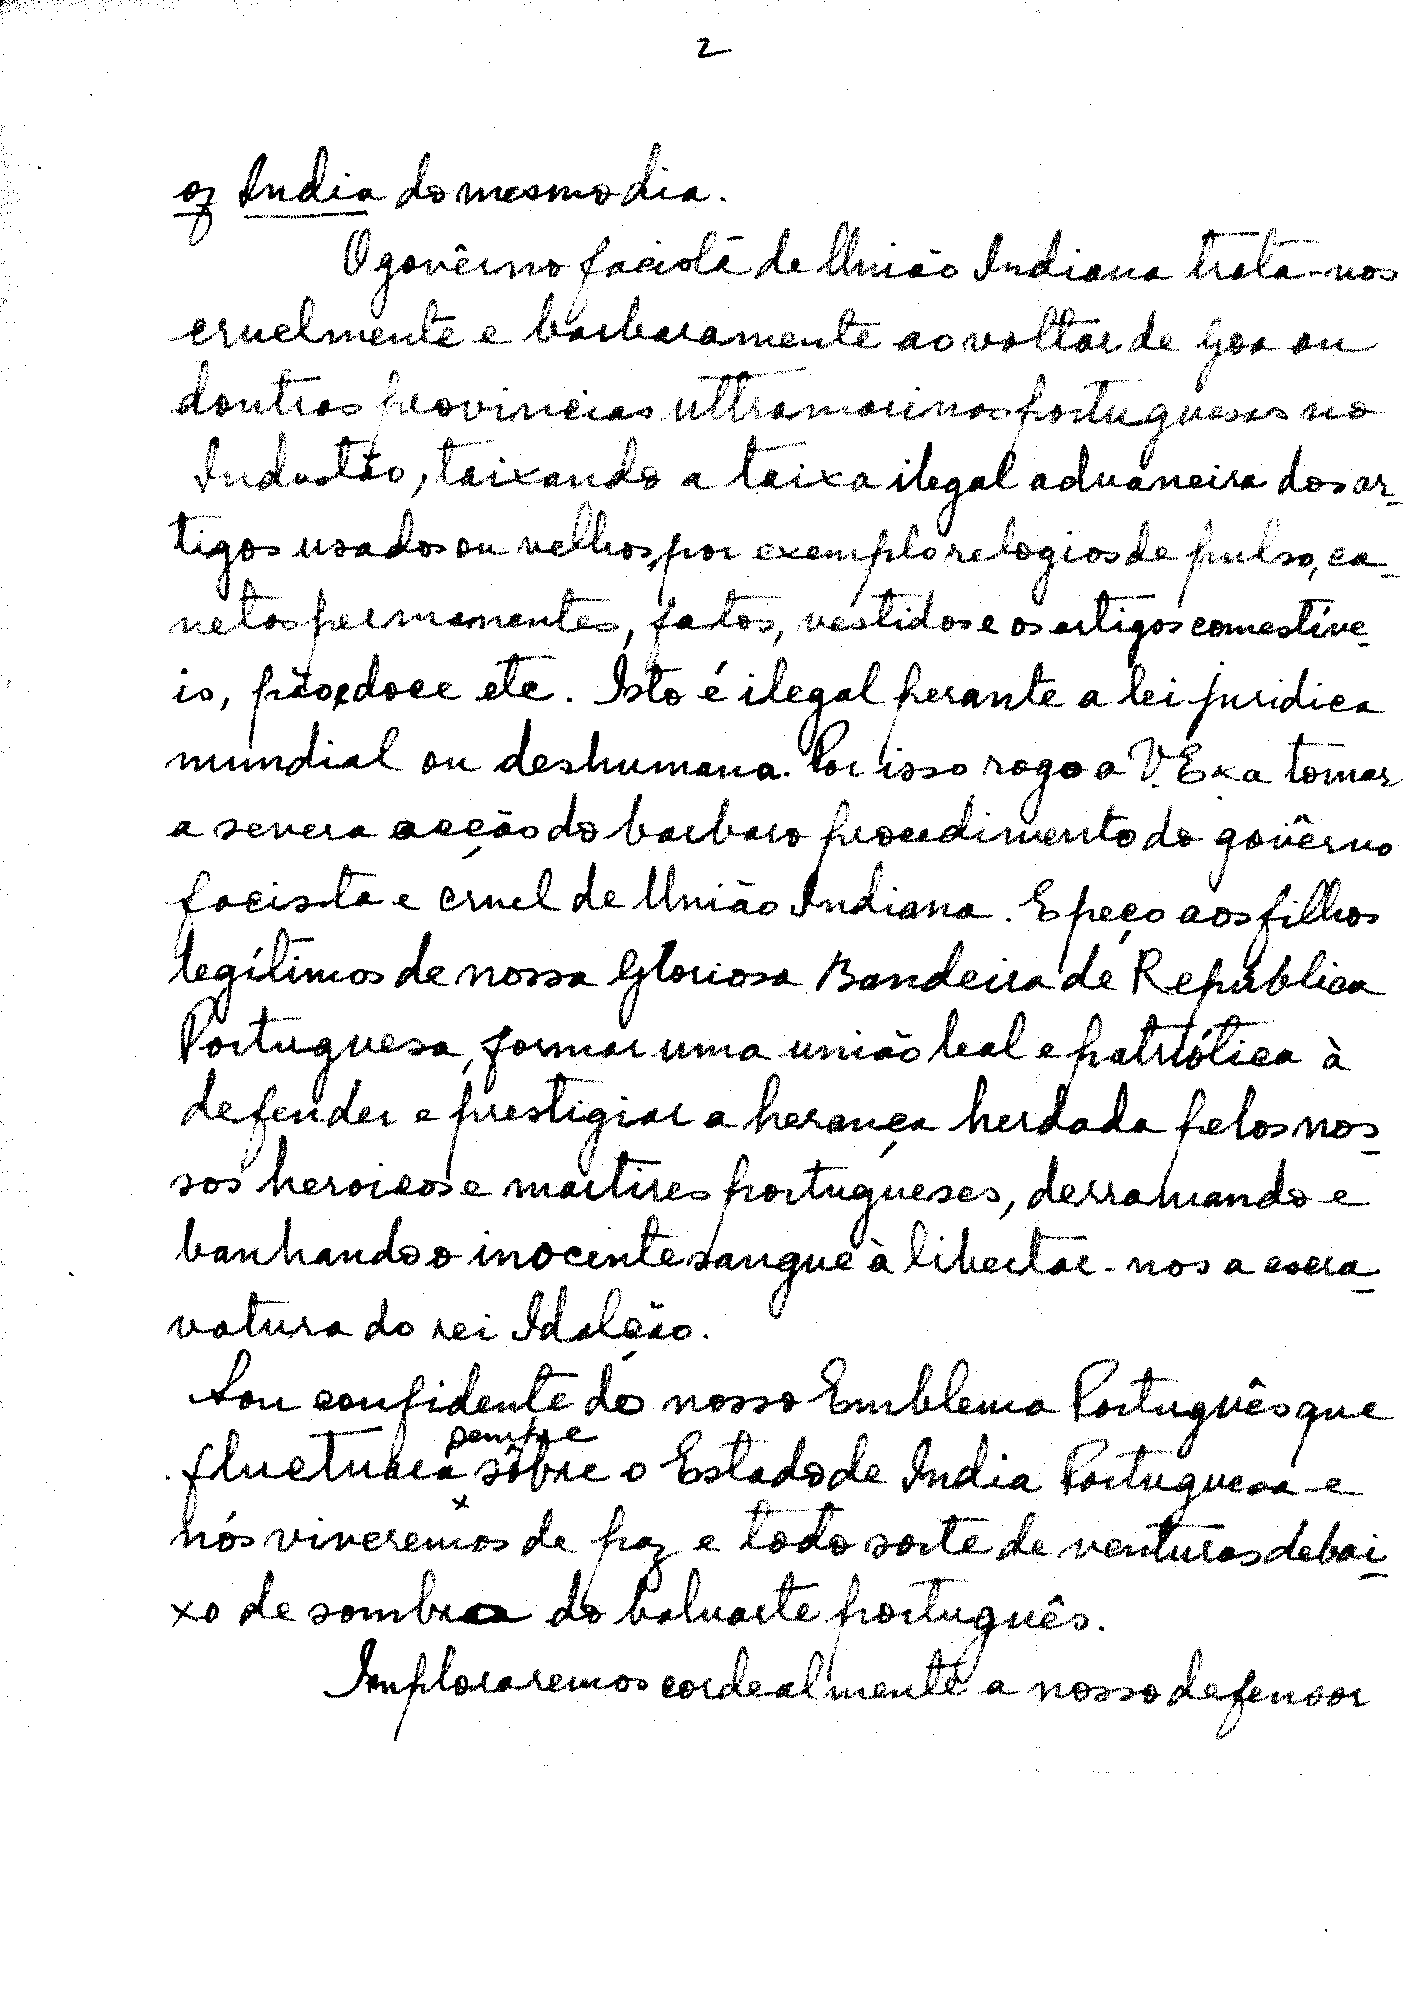 2
of India do mesmo dia.
O govêrno facista de União Indiana trata-nos
cruelmente e barbaramente ao voltar de Goa ou
doutras provincias ultramarinas portuguesas no
Industão, taixando a taixa ilegal aduaneira dos ar-
tigos usados ou velhos, por exemplo relogios de pulso, ca-
netas permamentes, fatos, vestidos e os artigos comestíve-
is, pão, doce etc. Isto é ilegal perante a lei juridica
mundial ou deshumana. Por isso rogo a V. Exa tomar
a severa acção do barbaro procedimento do govêrno
facista e cruel de União Indiana. E peço aos filhos
legítimos de nossa Gloriosa Bandeira de República
Portuguesa, formar uma união leal e patriótica à
defender e prestigiar a herança herdada pelos nos-
sos heroicos e martires portugueses, derramando e
banhando o inocente sangue à libertar-nos a escra-
vatura do rei Idalção.
Sou confidente do nosso Emblema Português que
fluctuará sempre sôbre o Estado de India Portuguesa e
nós viveremos de paz e todo sorte de venturas debai-
xo de sombra do baluarte português.
Imploraremos cordealmente a nosso defensor